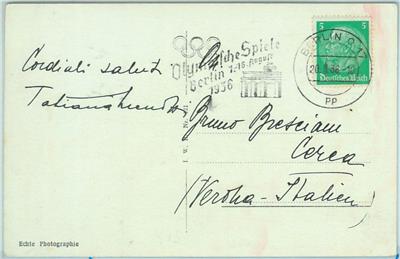 Cordiali saluti
Olympische Spiele
Berlin 1.-16. August
1936
BERLIN O 17
PP
5 5
Deutsches Reich
Bruno Bresciani
Cerea
(Verona - Italien)
Echte Photographie